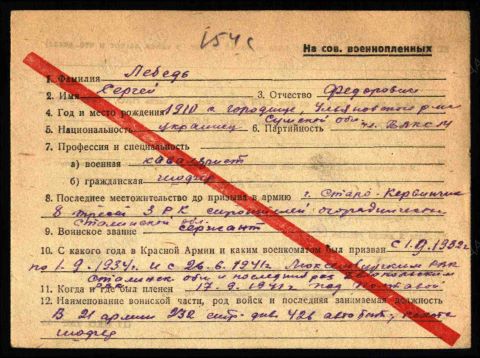 154с
На сов. военнопленных
1. Фамилия Лебедь
2. Имя Сергей 3. Отчество Федорович
4. Год и место рождения 1910 с городище, Ульяновского р-на
Сумской обл.
5. Национальность украинец 6. Партийность чл. ВЛКСМ
7. Профессия и специальность
а) военная кавалерист
б) гражданская шофер
8. Последнее местожительство до призыва в армию г. Старо-
8
Сталинской обл.
9. Воинское звание сержант
10. С какого года в Красной Армии и каким военкоматом был призван с 1.9.1932г.
по 1.9.1934г. и с 26.6.1941г. РВК
Сталинск. обл.
11. Когда и где был пленен 17.9.1941г. под Полтавой
12. Наименование воинской части, род войск и последняя занимаемая должность
В 21 армии 232 див. 426 пехота
шофер